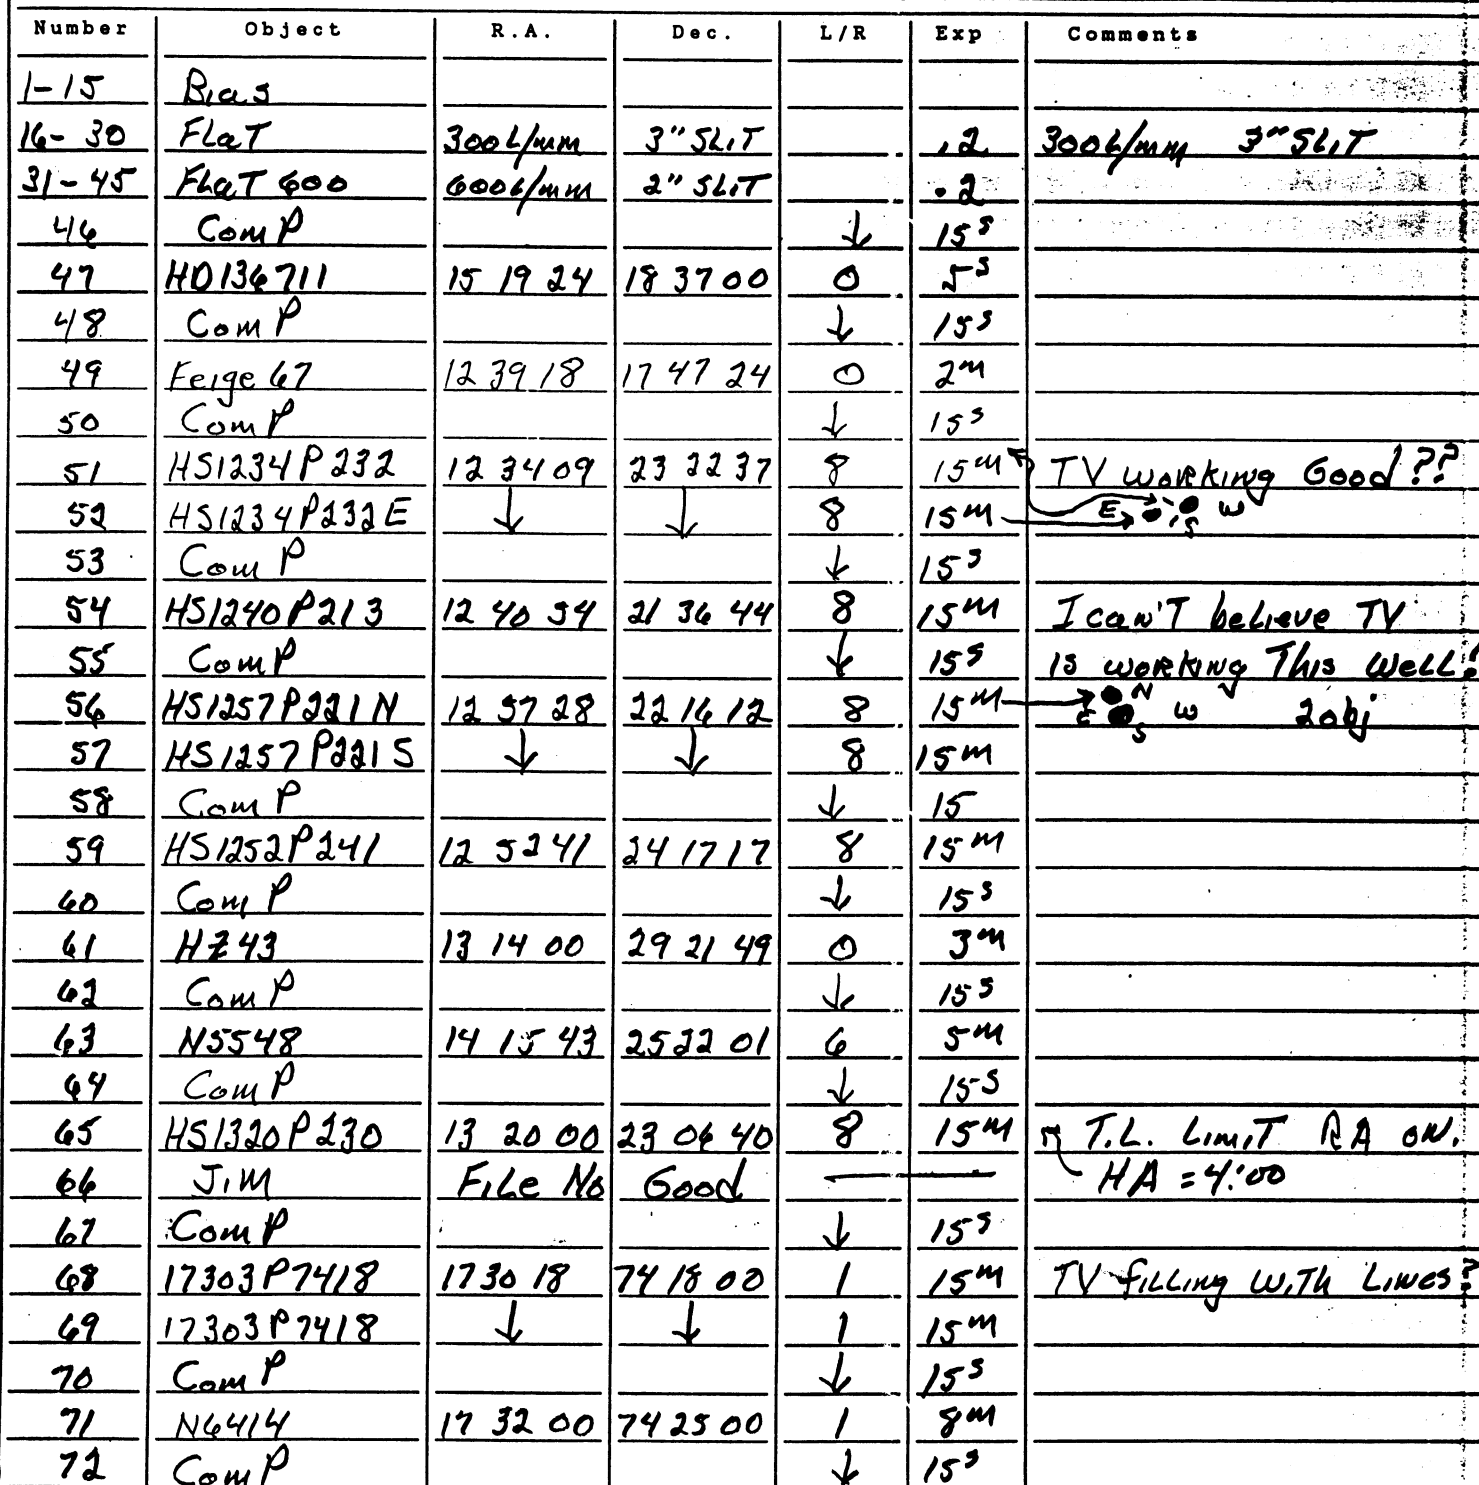 Number Object R.A. Dec. L/R Exp Comments
1-15 Bias
16-30 FLaT 300L/mm 3" SLiT .2 300L/mm 3" SLiT
31-45 FLaT 600 600L/mm 2" SLiT .2
46 ComP ↓ 15s
47 HD136711 15 19 24 18 37 00 0 5s
48 ComP ↓ 15s
49 Feige 67 12 39 18 17 47 24 0 2m
50 ComP ↓ 15s
51 HS1234P232 12 34 09 23 22 37 8 15m TV working Good??
52 HS1234P232E ↓ ↓ 8 15m E S W
53 ComP ↓ 15s
54 HS1240P213 12 40 54 21 36 44 8 15m I can'T believe TV
55 ComP ↓ 15s is working This WeLL!
56 HS1257P221N 12 57 28 22 16 12 8 15m N E W S 2obj
57 HS1257P221S ↓ ↓ 8 15m
58 ComP ↓ 15
59 HS1252P241 12 52 41 24 17 17 8 15m
60 ComP ↓ 15s
61 HZ43 13 14 00 29 21 49 0 3m
62 ComP ↓ 15s
63 N5548 14 15 43 25 22 01 6 5m
64 ComP ↓ 15s
65 HS1320P230 13 20 00 23 06 40 8 15m T.L. LimiT RA ON.
66 JiM FiLe No Good — HA = 4:00
67 ComP ↓ 15s
68 17303P7418 17 30 18 74 18 00 1 15m TV fiLLing WiTh Lines?
69 17303P7418 ↓ ↓ 1 15m
70 ComP ↓ 15s
71 N6414 17 32 00 74 25 00 1 8m
72 ComP ↓ 15s